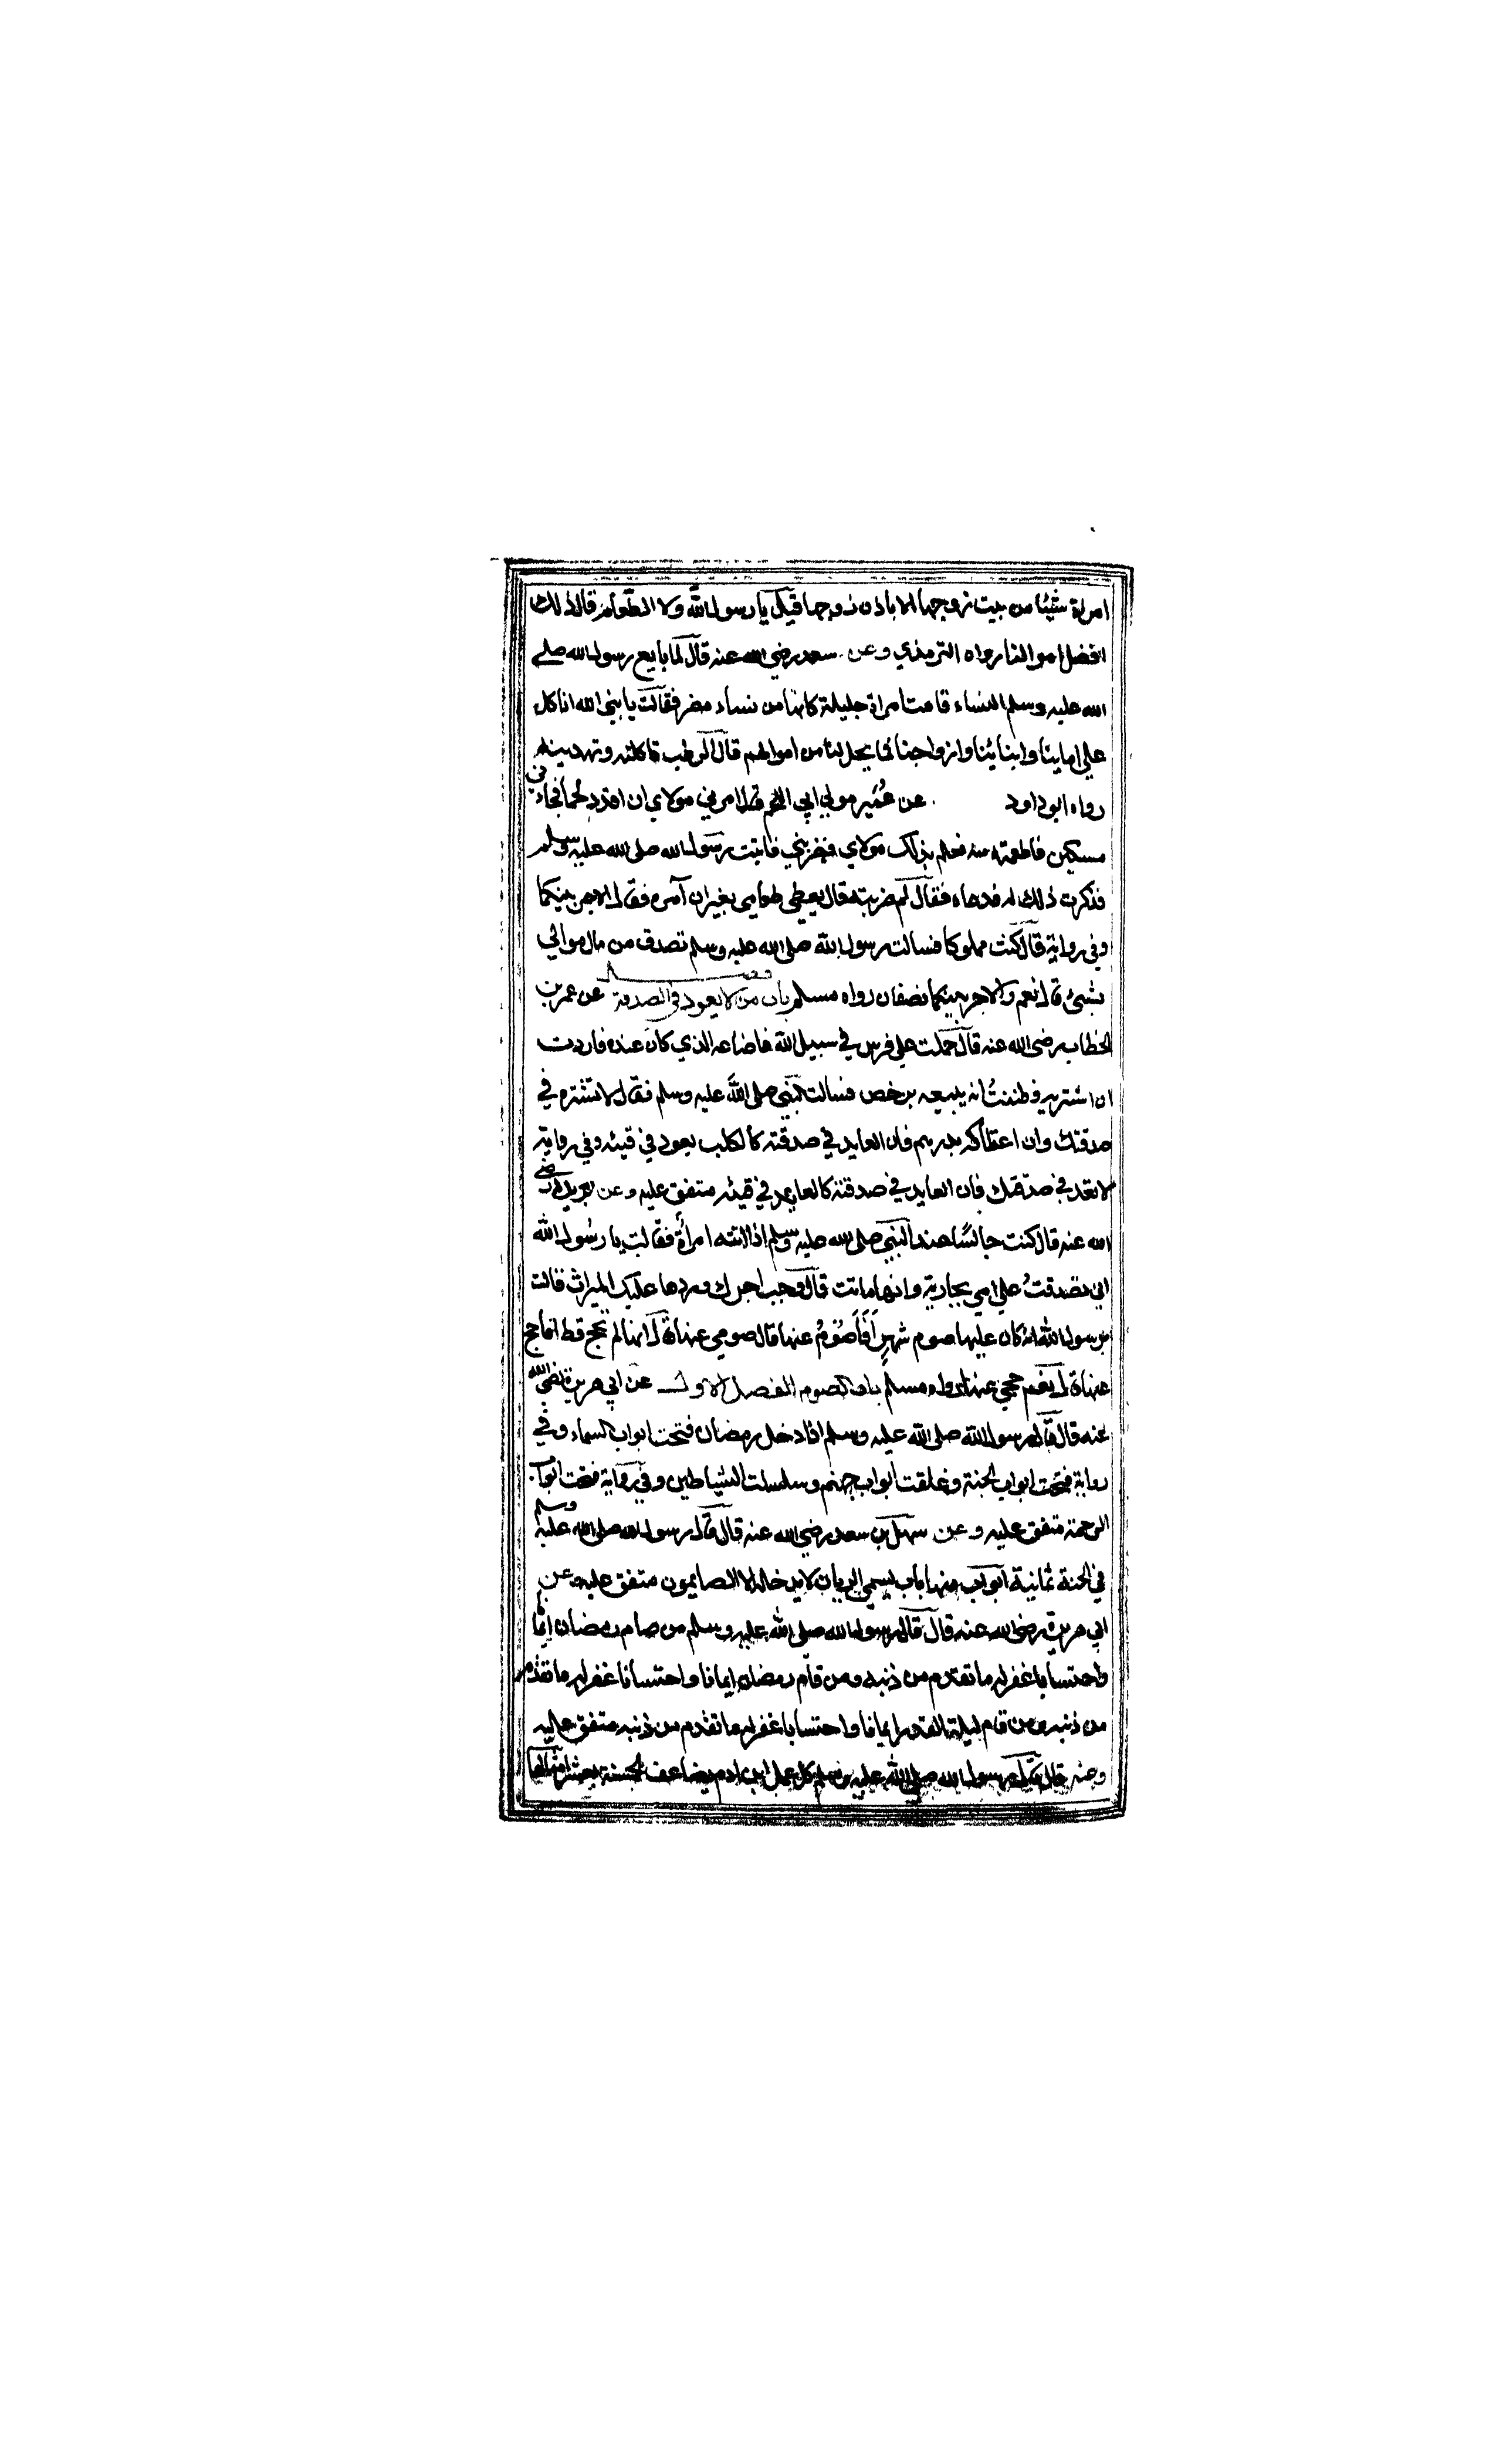 امراة شيئا من بيت زوجها الا باذن زوجها قيل يا رسول الله ولا الطعام قال ذلك
افضل اموالنا رواه الترمذي وعن سعد رضي الله عنه قال لما بايع رسول الله صلى
الله عليه وسلم النساء قامت امراة جليلة كانها من نساء مضر فقالت يا نبي الله انا كل
على ابابنا وابنائنا وازواجنا فما يحل لنا من اموالهم قال الرطب تاكلنه وتهدينه
رواه ابو داود عن عُمَير مولي ابي اللحم قال امرني مولاي ان اقدد لحما فجاءني
مسكين فاطعمته منه فعلم بذلك مولاي فضربني فاتيت رسول الله صلى الله عليه وسلم
فذكرت ذلك له فدعاه فقال لم ضربته قال يعطي طعامي بغير ان آمره فقال الاجر بينكما
وفي رواية قال كنت مملوكا فسالت رسول الله صلى الله عليه وسلم تصدق من مال موالي
بشئ قال نعم والاجر بينكما نصفان رواه مسلم باب من لا يعود في الصدقة عن عمر بن
الخطاب رضي الله عنه قال حملت علي فرس في سبيل الله فاضاعه الذي كان عنده فاردت
ان اشتريه وظننتُ انه يبيعه برخص فسالت النبي صلى الله عليه وسلم فقال لا تشتره في
صدقتك وان اعطاكه بدرهم فان العايد في صدقته كالكلب يعود في قيئه وفي رواية
لا تعد في صدقتك فان العايد في صدقته كالعايد في قيئه متفق عليه وعن بريدة رضي
الله عنه قال كنت جالسًا عند النبي صلى الله عليه وسلم اذا اتته امرأة فقالت يا رسول الله
اني تصدقتُ علي امي بجارية وانها ماتت قال وجب اجرك وردها عليك الميراث قالت
يرسول الله انه كان عليها صوم شهرٍ اَفَاَصُوْمُ عنها قال صومي عنها قال انها لم تحج قط افاحج
عنها قال نعم حجي عنها رواه مسلم باب الصوم الفصل الاول عن ابي هريرة رضي الله
عنه قال قال رسول الله صلى الله عليه وسلم اذا دخل رمضان فتحت ابواب السماء وفي
رواية فتحت ابواب الجنة وغلقت ابواب جهنم وسلسلت الشياطين وفي رواية فتحت ابواب
الرحمة متفق عليه وعن سهل بن سعد رضي الله عنه قال قال رسول الله صلى الله عليه وسلم
في الجنة ثمانية ابواب منها باب يسمي الريان لا يدخله الا الصايمون متفق عليه وعن
ابي هريرة رضي الله عنه قال قال رسول الله صلى الله عليه وسلم من صام رمضان ايمانا
واحتسابا غفر له ما تقدم من ذنبه ومن قام رمضان ايمانا واحتسابا غفر له ما تقدم
من ذنبه ومن قام ليلة القدر ايمانا واحتسابا غفر له ما تقدم من ذنبه متفق عليه
وعنه قال قال رسول الله صلى الله عليه وسلم كل عمل ابن ادم يضاعف الحسنة بعشر امثالها